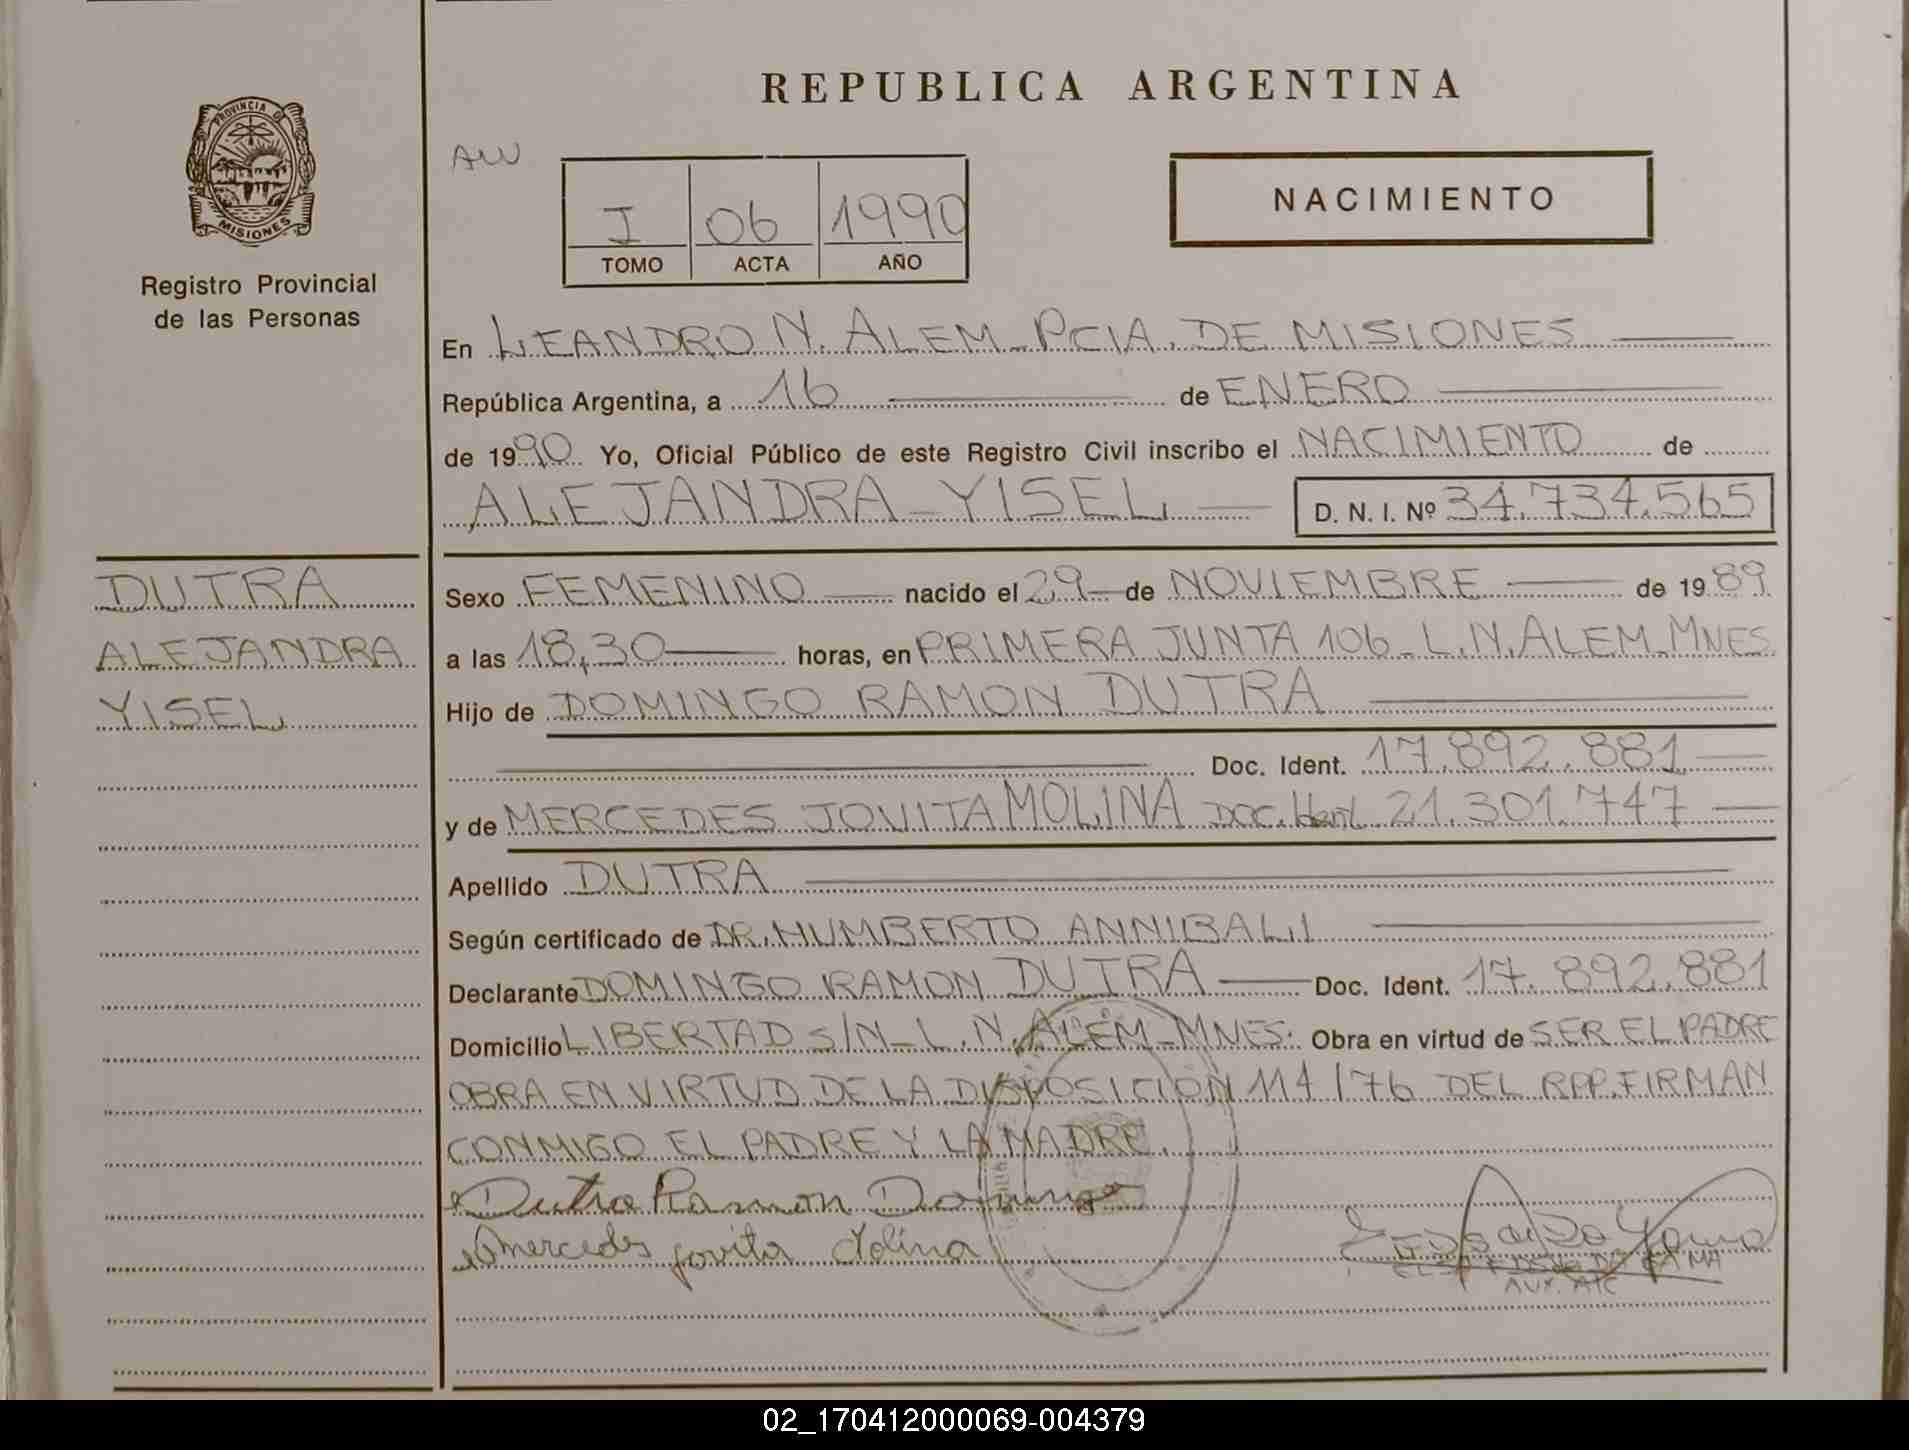 REPUBLICA ARGENTINA
PROVINCIA DE
MISIONES
Registro Provincial
de las Personas
AW
I 06 1990
TOMO ACTA AÑO
NACIMIENTO
En LEANDRO N. ALEM - PCIA. DE MISIONES
República Argentina, a 16 de ENERO
de 1990 Yo, Oficial Público de este Registro Civil inscribo el NACIMIENTO de
ALEJANDRA YISEL D. N. I. Nº 34.734.565
DUTRA
ALEJANDRA
YISEL
Sexo FEMENINO nacido el 29 de NOVIEMBRE de 1989
a las 18,30 horas, en PRIMERA JUNTA 106 - L.N. ALEM - MNES
Hijo de DOMINGO RAMON DUTRA
Doc. Ident. 17.892.881
y de MERCEDES JOVITA MOLINA DOC. Ident 21.301.747
Apellido DUTRA
Según certificado de DR. HUMBERTO ANNIBALI
Declarante DOMINGO RAMON DUTRA Doc. Ident. 17.892.881
Domicilio LIBERTAD S/N - L.N. ALEM - MNES. Obra en virtud de SER EL PADRE
OBRA EN VIRTUD DE LA DISPOSICION 114/76 DEL RPP. FIRMAN
CONMIGO EL PADRE Y LA MADRE.
Dutra Ramon Domingo
Mercedes jovita Molina
AUX.
02_170412000069-004379